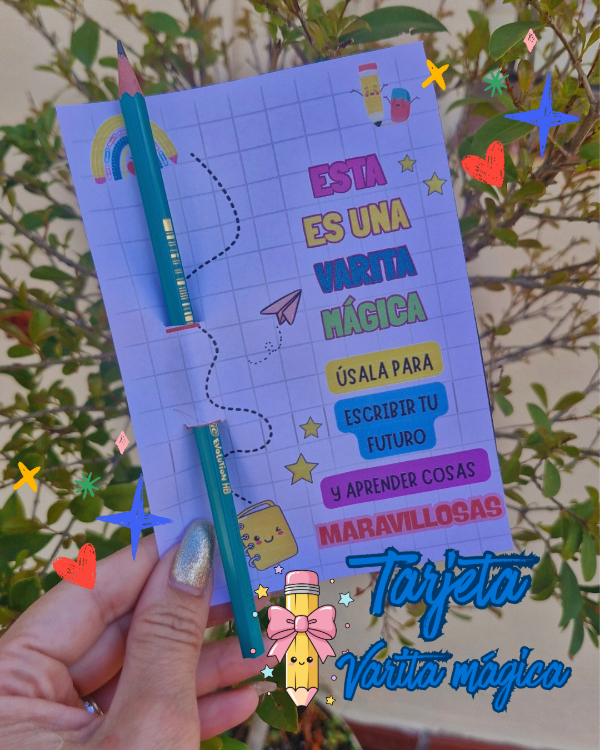 ESTA
ES UNA
VARITA
MÁGICA
ÚSALA PARA
ESCRIBIR TU
FUTURO
Y APRENDER COSAS
MARAVILLOSAS
EVOLUTION HB
Tarjeta
Varita mágica